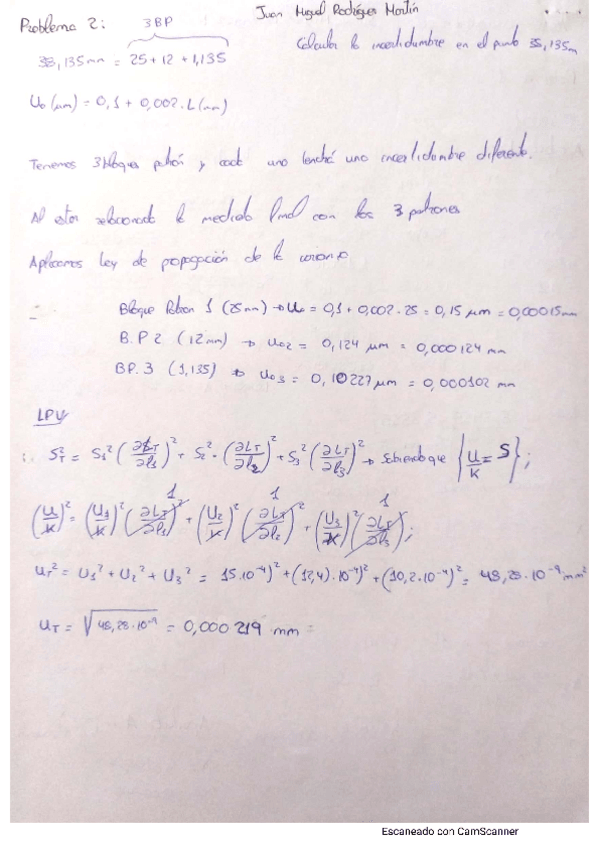 Juan Miguel Rodríguez Martín
Problema 2: 3 BP
38,135mm = 25 + 12 + 1,135
Calcular la incertidumbre en el punto 38,135m
U₀ (µm) = 0,1 + 0,002 · L (mm)
Tenemos 3 bloques patrón y cada uno tendrá una incertidumbre diferente.
Al estar relacionada la medida final con los 3 patrones
Aplicamos Ley de propagación de la varianza
Bloque Patron 1 (25mm) → U₀ = 0,1 + 0,002 · 25 = 0,15 µm = 0,00015mm
B.P 2 (12mm) → U₀₂ = 0,124 µm = 0,000124 mm
BP. 3 (1,135) → U₀₃ = 0,10227 µm = 0,000102 mm
LPV
S_T² = S₁² (∂L_T/∂l₁)² + S₂² · (∂L_T/∂l₂)² + S₃² (∂L_T/∂l₃)² → Sabiendo que {U/K = S};
(U/K)² = (U₁/K)² (∂L_T/∂l₁)² 1 + (U₂/K)² (∂L_T/∂l₂)² 1 + (U₃/K)² (∂L_T/∂l₃)² 1;
U_T² = U₁² + U₂² + U₃² = 15·10⁻⁴)² + (12,4)·10⁻⁴)² + (10,2·10⁻⁴)² = 48,28·10⁻⁹ mm²
U_T = √48,28·10⁻⁹ = 0,000219 mm
Escaneado con CamScanner